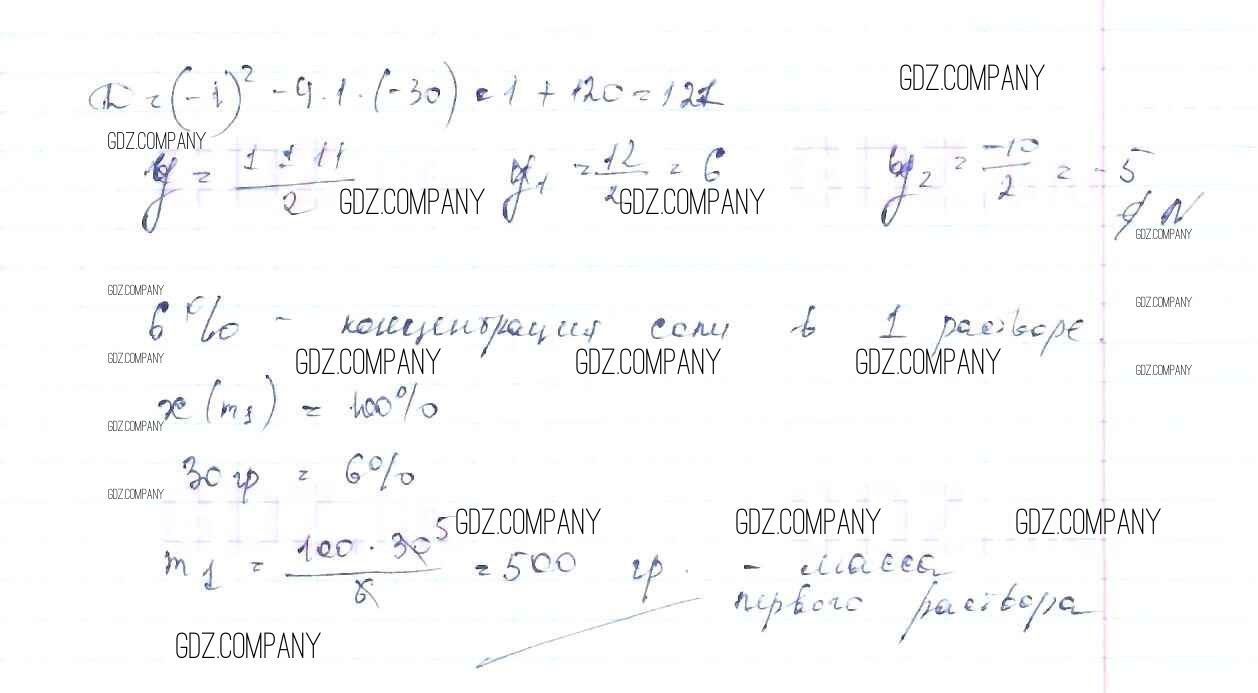 D = (-1)² - 4·1·(-30) = 1 + 120 = 121
GDZ.COMPANY
GDZ.COMPANY
y = (1 ± 11)/2 y₁ = 12/2 = 6 y₂ = -10/2 = -5
GDZ.COMPANY GDZ.COMPANY
∉ N
GDZ.COMPANY
GDZ.COMPANY
GDZ.COMPANY
6% - концентрация соли в 1 растворе.
GDZ.COMPANY GDZ.COMPANY GDZ.COMPANY GDZ.COMPANY
GDZ.COMPANY
x (m₁) = 100%
GDZ.COMPANY
30 гр = 6%
GDZ.COMPANY
GDZ.COMPANY GDZ.COMPANY GDZ.COMPANY
m₁ = (100 · 30⁵)/6 = 500 гр. - масса
первого раствора
GDZ.COMPANY